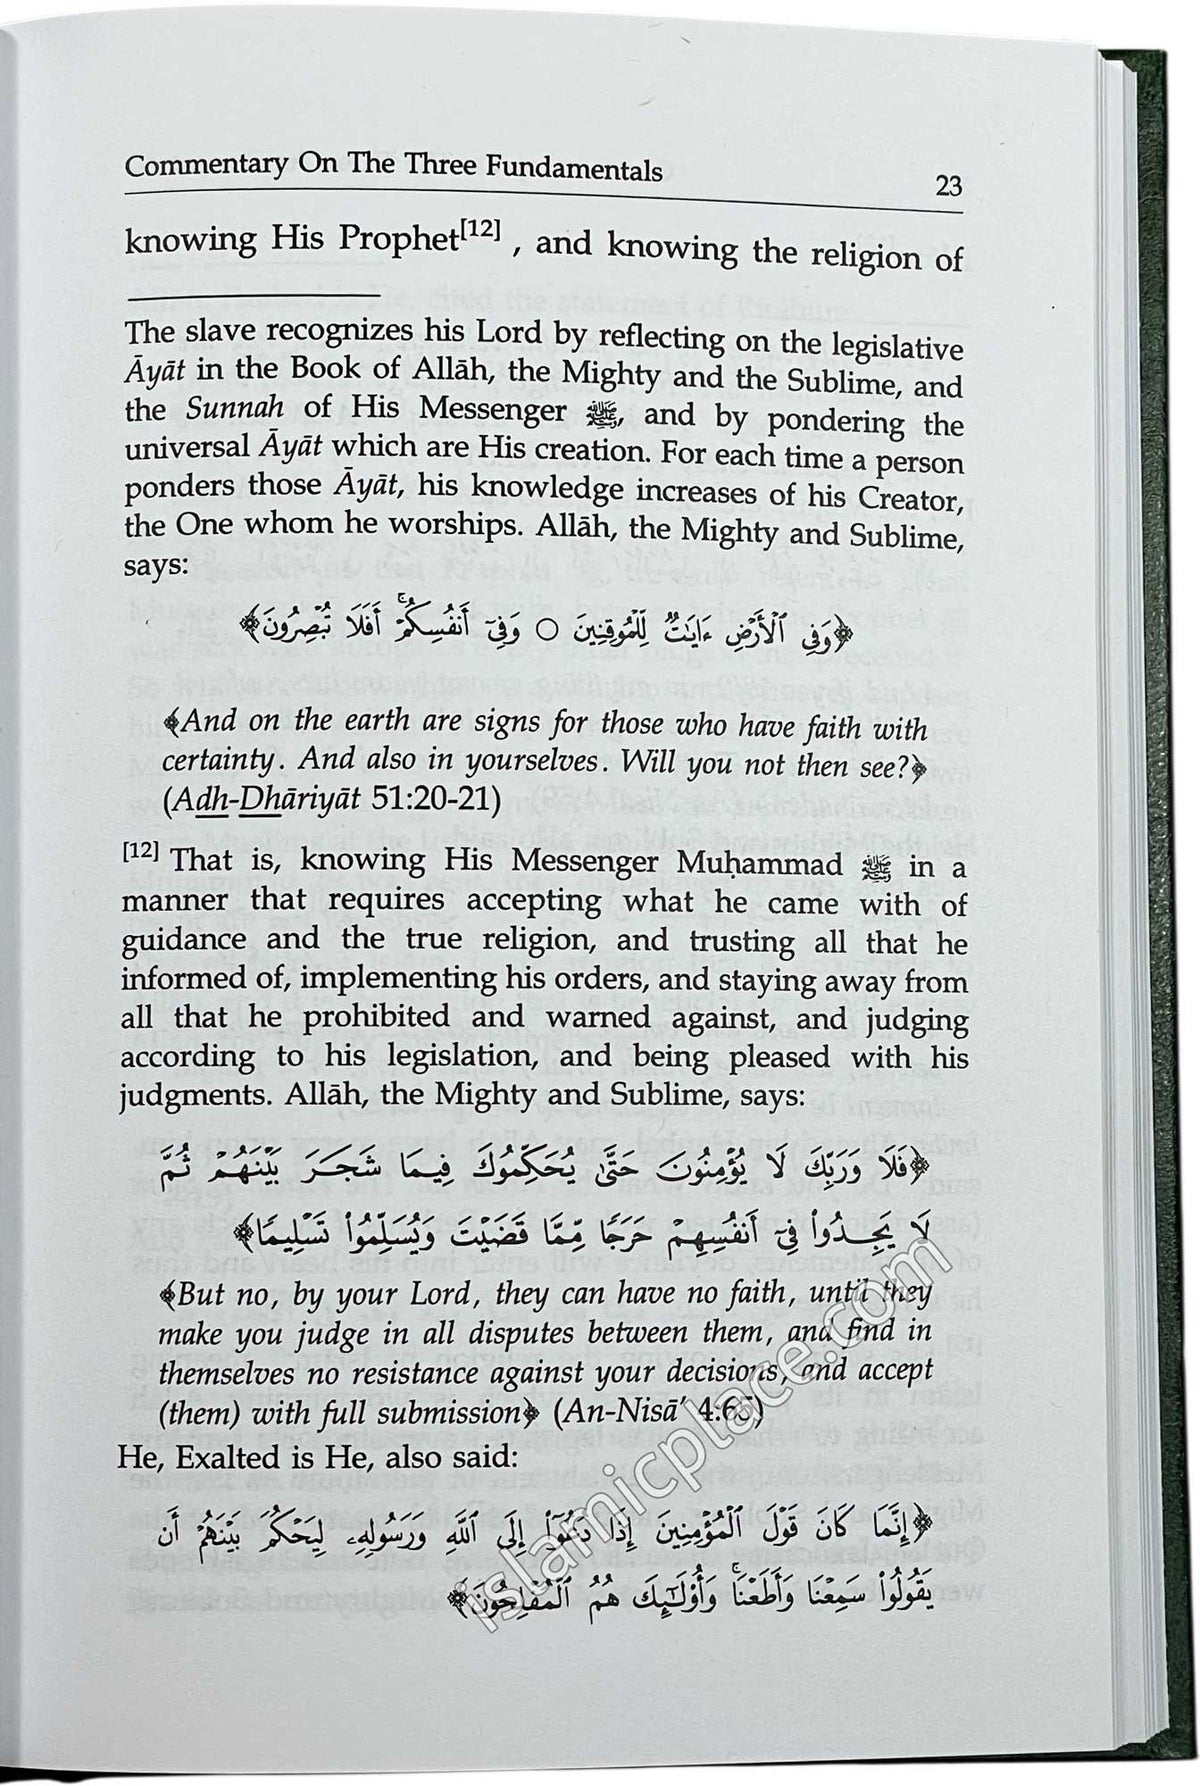 Commentary On The Three Fundamentals 23
knowing His Prophet[12] , and knowing the religion of
The slave recognizes his Lord by reflecting on the legislative
Āyāt in the Book of Allāh, the Mighty and the Sublime, and
the Sunnah of His Messenger ﷺ, and by pondering the
universal Āyāt which are His creation. For each time a person
ponders those Āyāt, his knowledge increases of his Creator,
the One whom he worships. Allāh, the Mighty and Sublime,
says:
﴿وَفِي ٱلْأَرْضِ ءَايَٰتٌ لِّلْمُوقِنِينَ ○ وَفِىٓ أَنفُسِكُمْ ۚ أَفَلَا تُبْصِرُونَ﴾
﴾And on the earth are signs for those who have faith with
certainty. And also in yourselves. Will you not then see?﴿
(Adh-Dhāriyāt 51:20-21)
[12] That is, knowing His Messenger Muḥammad ﷺ in a
manner that requires accepting what he came with of
guidance and the true religion, and trusting all that he
informed of, implementing his orders, and staying away from
all that he prohibited and warned against, and judging
according to his legislation, and being pleased with his
judgments. Allāh, the Mighty and Sublime, says:
﴿فَلَا وَرَبِّكَ لَا يُؤْمِنُونَ حَتَّىٰ يُحَكِّمُوكَ فِيمَا شَجَرَ بَيْنَهُمْ ثُمَّ
لَا يَجِدُوا۟ فِىٓ أَنفُسِهِمْ حَرَجًا مِّمَّا قَضَيْتَ وَيُسَلِّمُوا۟ تَسْلِيمًا﴾
﴾But no, by your Lord, they can have no faith, until they
make you judge in all disputes between them, and find in
themselves no resistance against your decisions, and accept
(them) with full submission﴿ (An-Nisā' 4:65)
He, Exalted is He, also said:
﴿إِنَّمَا كَانَ قَوْلَ ٱلْمُؤْمِنِينَ إِذَا دُعُوٓا۟ إِلَى ٱللَّهِ وَرَسُولِهِۦ لِيَحْكُمَ بَيْنَهُمْ أَن
يَقُولُوا۟ سَمِعْنَا وَأَطَعْنَا ۚ وَأُو۟لَٰٓئِكَ هُمُ ٱلْمُفْلِحُونَ﴾
islamicplace.com